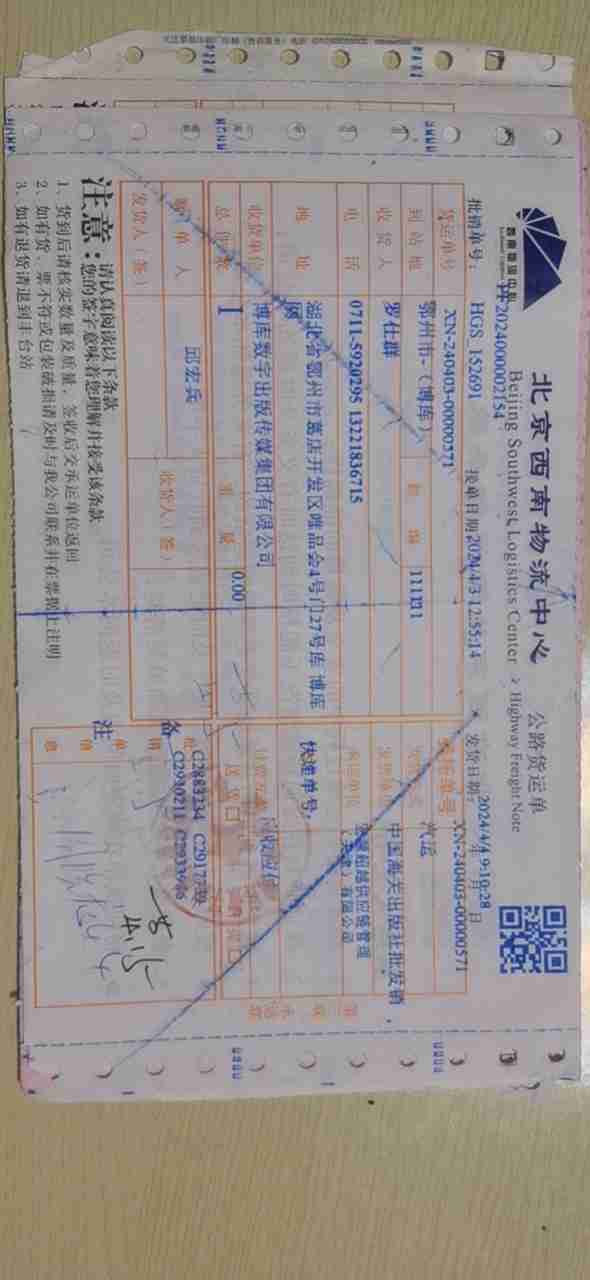 北京西南物流中心 公路货运单
Beijing Southwest Logistics Center Highway Freight Note
2024000002154
批销单号: HGS 152691 接单日期 2024/4/3 12:55:14 发货日期: 2024/4/4 9:10:28
年 月 日
货运单号 XN-240403-00000571 XN-240403-00000571
到站地 鄂州市-(博库) 111131 汽运
收货人 罗仕群 中国海关出版社批发销
电话 0711-5920295 13221836715 (天津)有限公司
地址 湖北省鄂州市葛店开发区唯品会4号门27号库 博库
网 快递单号:
收货单位 博库数字出版传媒集团有限公司
总件数 1 重量 0.00 送货口
制单人 邱宏兵
发货人(签) 收货人(签)
备注
C2883234 C2917739
C2930211 C2933646
批销单信息
4/5
注意: 请认真阅读以下条款
您的签字意味着您理解并接受该条款
1、货到后请核实数量及质量, 签收后交承运单位返回
2、如有货、票不符或包装破损请及时与我公司联系并在票据上注明
3、如有退货请退到丰台站